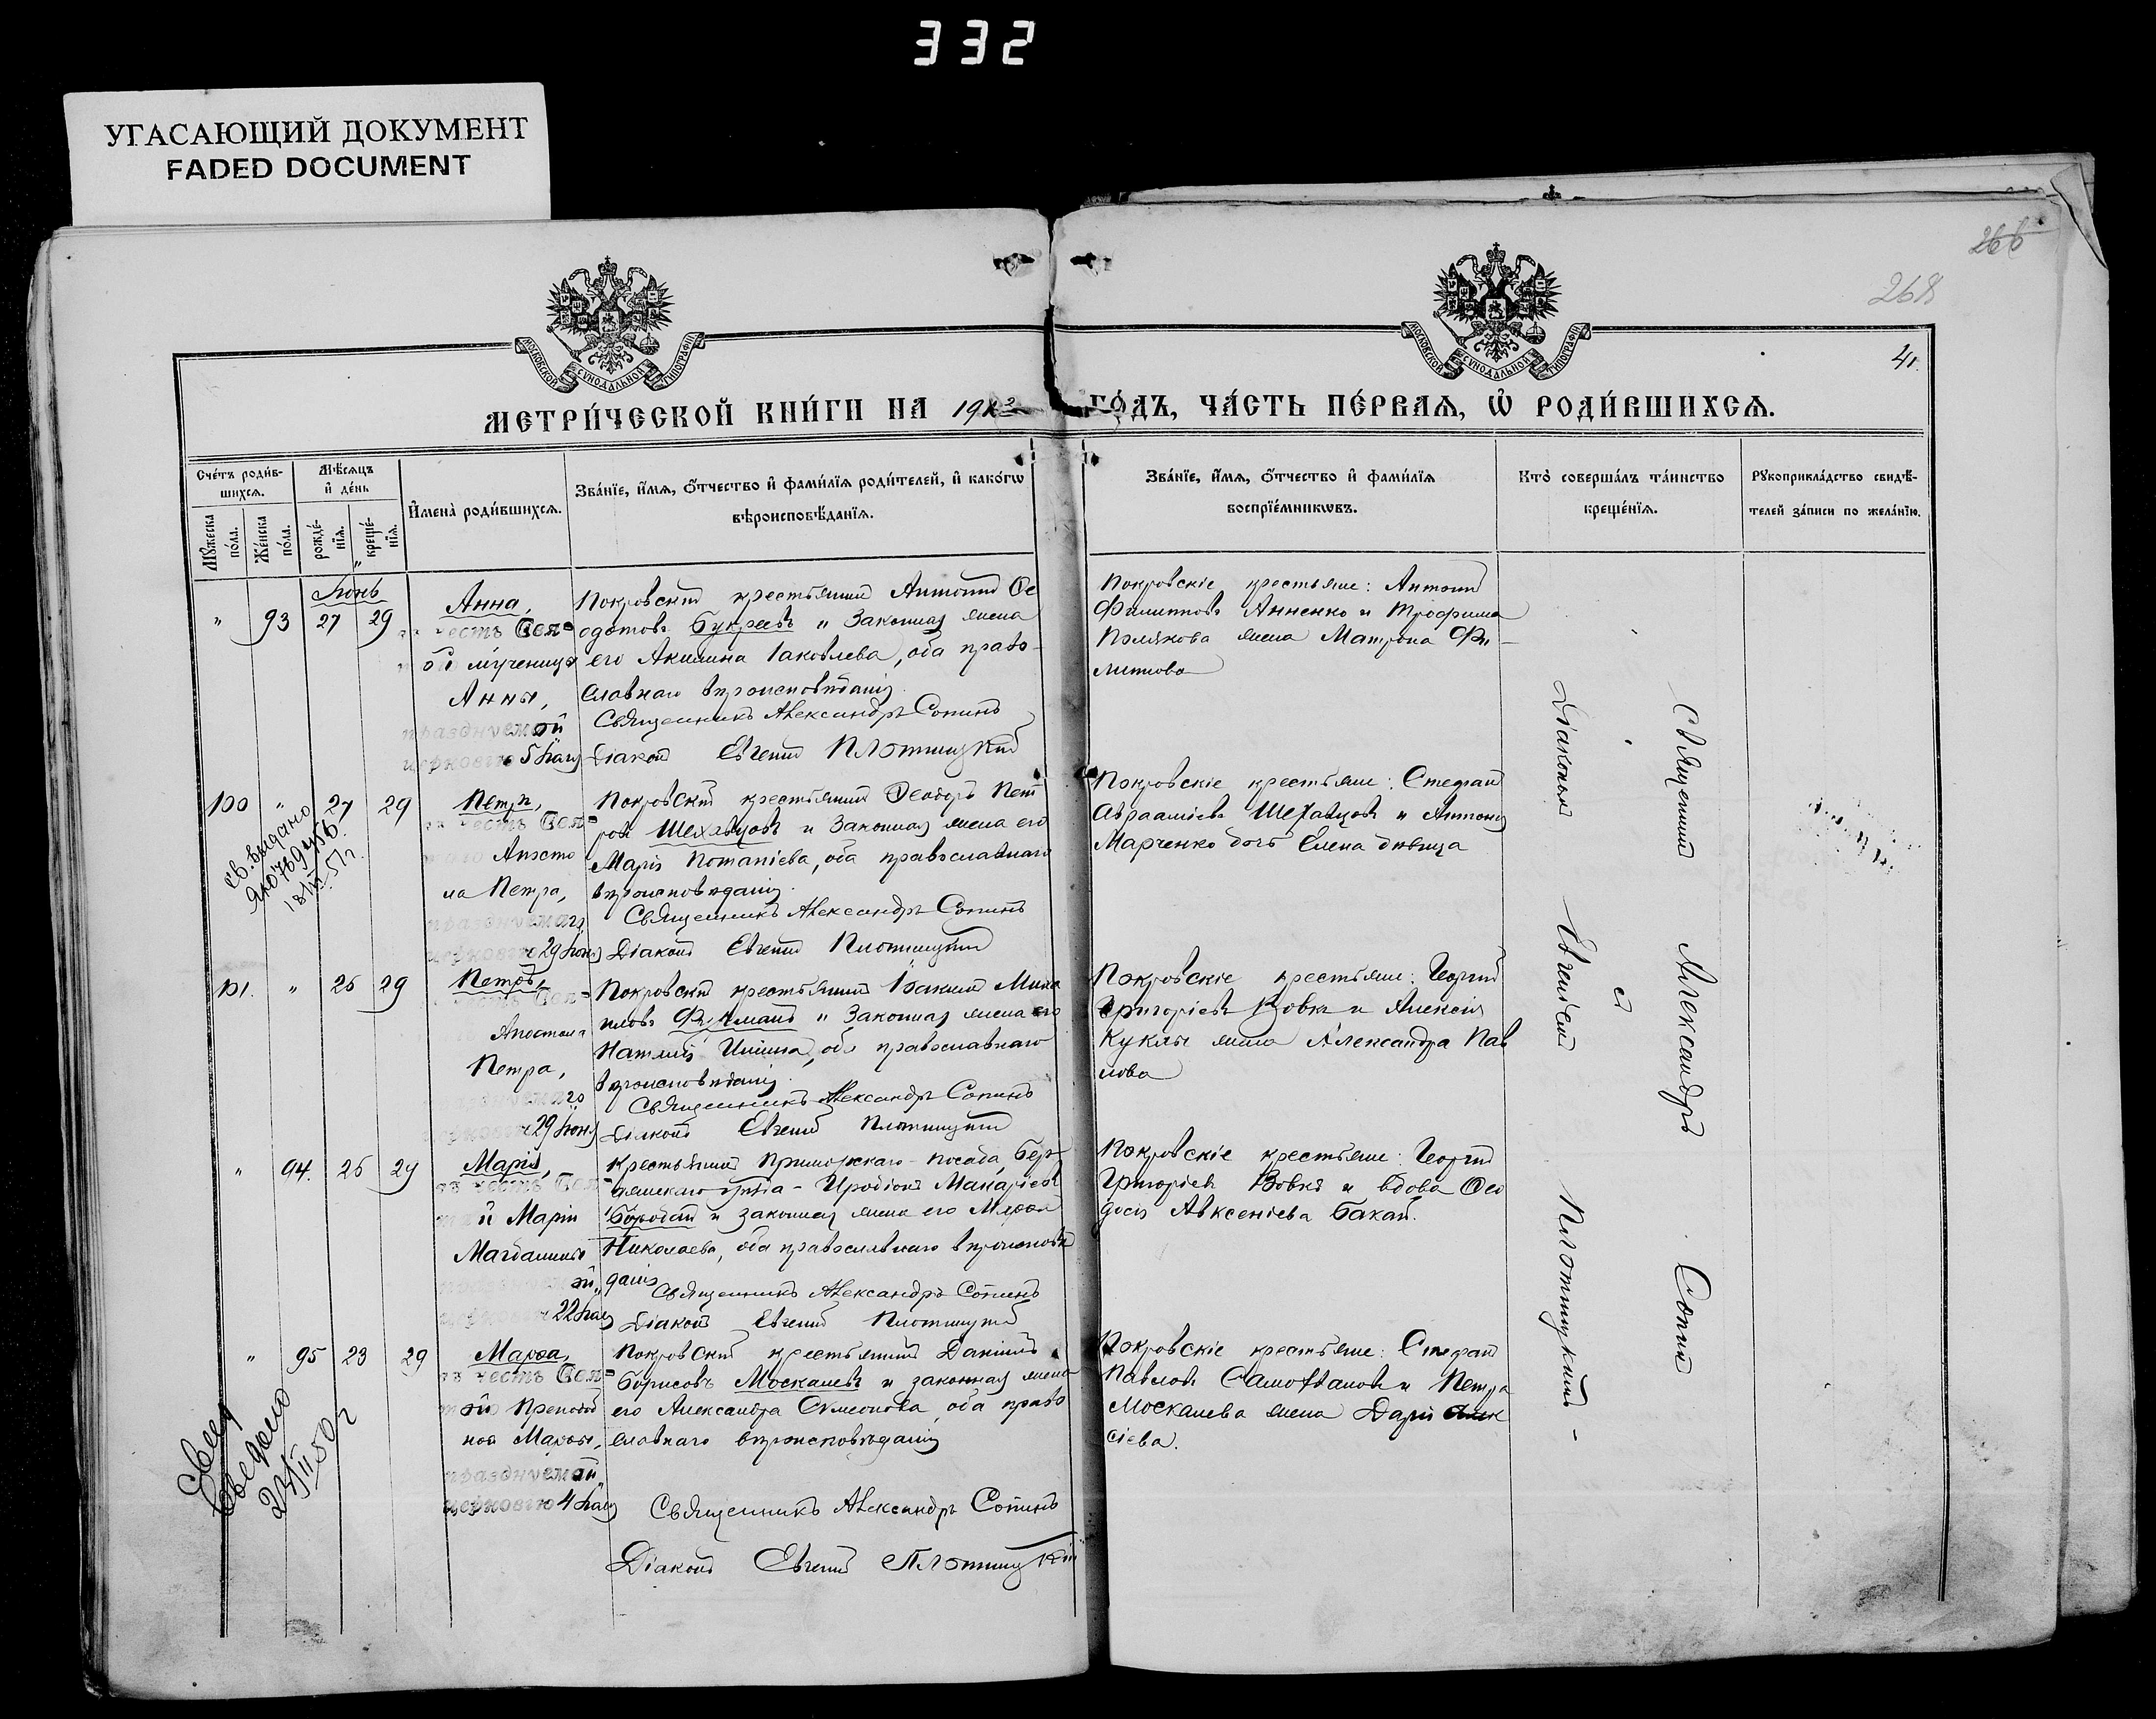 332
УГАСАЮЩИЙ ДОКУМЕНТ
FADED DOCUMENT
266
268
41.
МОСКОВСКОЙ СУНОДАЛЬНОЙ ТИПОГРАФІИ
МОСКОВСКОЙ СУНОДАЛЬНОЙ ТИПОГРАФІИ
МЕТРИ́ЧЕСКОЙ КНИ́ГИ НА 1913 ГО́ДЪ, ЧА́СТЬ ПЕ́РВАѦ, Ѡ РОДИ́ВШИХСѦ.
Сче́тъ роди́в-
шихсѧ.
Мꙋ́жеска по́ла.
Же́нска по́ла.
Мѣ́сѧцъ
и҆ де́нь
рожде́-
нїѧ.
креще́-
нїѧ.
И҆мена̀ роди́вшихсѧ.
Зва́нїе, и҆́мѧ, ѻ҆́тчество и҆ фами́лїѧ роди́телей, и҆ како́гѡ
вѣроисповѣ́данїѧ.
Зва́нїе, и҆́мѧ, ѻ҆́тчество и҆ фами́лїѧ
воспрїе́мникѡвъ.
Кто̀ соверша́лъ та́инство
креще́нїѧ.
Рꙋкоприкла́дство свидѣ́-
телей за́писи по жела́нїю.
Іюнь
" 93 27 29
Анна,
въ честь Свя=
ой мученицы
Анны,
празднуемой
церковію 5 Іюля
Покровскій крестьянинъ Антоній Ѳе
одотовъ Букреевъ и законная жена
его Акилина Іаковлева, оба право-
славнаго вѣроисповѣданія.
Священникъ Александръ Сопинъ
Діаконъ Евгеній Плотницкій
Покровскіе крестьяне: Антоній
Филипповъ Анненко и Трофима
Полякова жена Матрона Фи-
липпова
100 " 27 29
св. выдано
18/IX 51г.
Петръ,
въ честь Свя=
таго Апосто
ла Петра,
празднуемаго
церковію 29 Іюня
Покровскій крестьянинъ Ѳеодоръ Пет
ровъ Шехавцовъ и законная жена его
Марія Потапіева, оба православнаго
вѣроисповѣданія.
Священникъ Александръ Сопинъ
Діаконъ Евгеній Плотницкій
Покровскіе крестьяне: Стефанъ
Авраамиевъ Шехавцовъ и Антонія
Марченко дочь Елена дѣвица
101. " 26 29
Петръ,
Апостола
Петра,
29 Іюня
Покровскій крестьянинъ Іоакимъ Миха
иловъ и законная жена его
Наталія Ильина, оба православнаго
вѣроисповѣданія.
Священникъ Александръ Сопинъ
Діаконъ Евгеній Плотницкій
Покровскіе крестьяне: Георгій
Григоріевъ Вовкъ и Алексія
Куклы жена Александра Пав
лова
" 94. 26 29
Марія,
въ честь Свя=
той Маріи
Магдалины
22 Іюля
Крестьянинъ Приморскаго посада, Бер-
дянскаго уѣзда - Иродіонъ Макаріевъ
и законная жена его Марѳа
Николаева, оба православнаго вѣроисповѣ
данія
Священникъ Александръ Сопинъ
Діаконъ Евгеній Плотницкій
Покровскіе крестьяне: Георгій
Григоріевъ Вовкъ и вдова Ѳео
досія Авксеніева Бакай.
" 95 23 29
Марѳа,
въ честь Свя=
той Преподоб
ной Марѳы,
празднуемой
церковію 4 Іюля
Покровскій крестьянинъ Даніилъ
Борисовъ Москалевъ и законная жена
его Александра Симеонова, оба право
славнаго вѣроисповѣданія
Священникъ Александръ Сопинъ
Діаконъ Евгеній Плотницкій
Покровскіе крестьяне: Стефанъ
Павловъ Самохваловъ и Петра
Москалева жена Дарія Алек
сіева.
Священникъ Александръ Сопинъ
съ
Діакономъ Евгеніемъ Плотницкимъ -